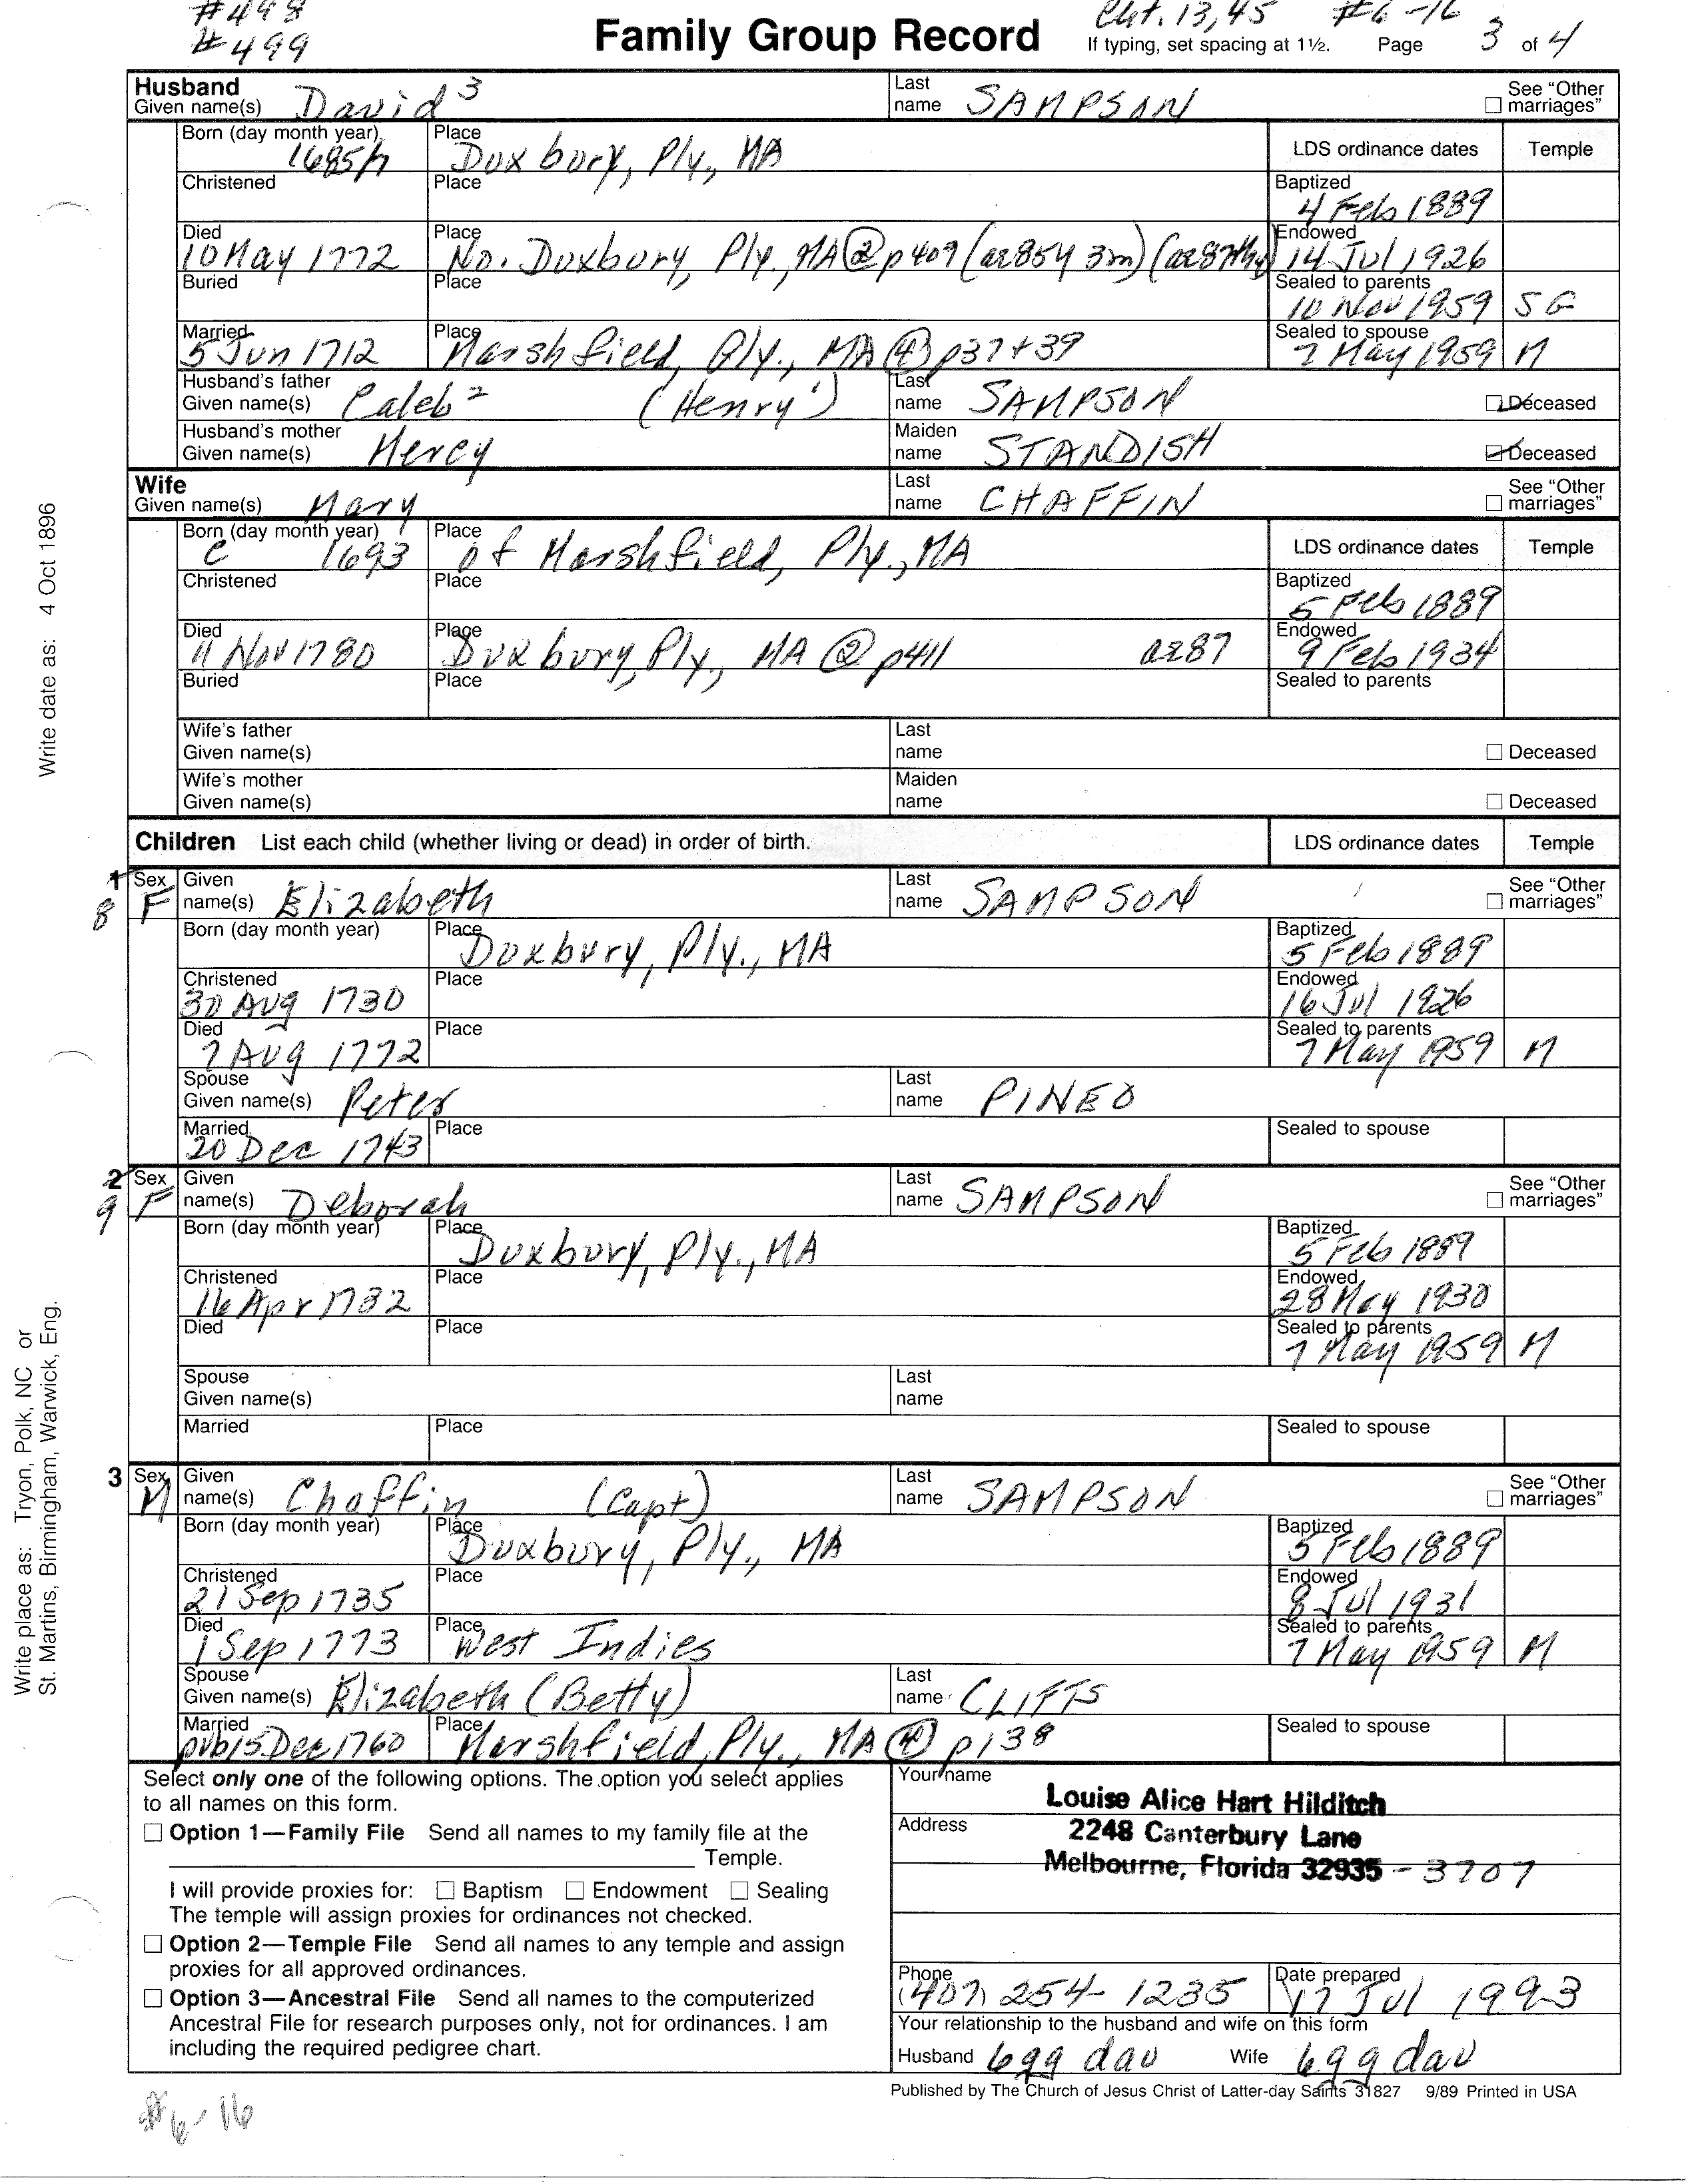 #498
#499
Family Group Record
Cht. 13,45 #6-16
If typing, set spacing at 1½. Page 3 of 4
Husband
Given name(s) David 3 Last name SAMPSON See "Other marriages"
Born (day month year) Place Duxbury, Ply., MA LDS ordinance dates Temple
Christened Place Baptized 4 Feb 1889
Died 10 May 1772 Place No. Duxbury, Ply., MA @ p409 (ae 85y 3m) Endowed 14 Jul 1926
Buried Place Sealed to parents 10 Nov 1959 SG
Married 5 Jun 1712 Place Marshfield, Ply., MA p37+39 Sealed to spouse 7 May 1959 M
Husband's father
Given name(s) Caleb 2 (Henry 1) Last name SAMPSON Deceased
Husband's mother
Given name(s) Mercy Maiden name STANDISH Deceased
Wife
Given name(s) Mary Last name CHAFFIN See "Other marriages"
Born (day month year) c 1693 Place of Marshfield, Ply., MA LDS ordinance dates Temple
Christened Place Baptized 5 Feb 1889
Died 11 Nov 1780 Place Duxbury, Ply., MA @ p411 ae 87 Endowed 9 Feb 1934
Buried Place Sealed to parents
Wife's father
Given name(s) Last name Deceased
Wife's mother
Given name(s) Maiden name Deceased
Children List each child (whether living or dead) in order of birth. LDS ordinance dates Temple
1 8 Sex F Given name(s) Elizabeth Last name SAMPSON See "Other marriages"
Born (day month year) Place Duxbury, Ply., MA Baptized 5 Feb 1889
Christened 30 Aug 1730 Place Endowed 16 Jul 1926
Died 7 Aug 1772 Place Sealed to parents 7 May 1959 M
Spouse
Given name(s) Peter Last name PINEO
Married 20 Dec 1743 Place Sealed to spouse
2 9 Sex F Given name(s) Deborah Last name SAMPSON See "Other marriages"
Born (day month year) Place Duxbury, Ply., MA Baptized 5 Feb 1889
Christened 16 Apr 1732 Place Endowed 28 May 1930
Died Place Sealed to parents 7 May 1959 M
Spouse
Given name(s) Last name
Married Place Sealed to spouse
3 Sex M Given name(s) Chaffin (Capt) Last name SAMPSON See "Other marriages"
Born (day month year) Place Duxbury, Ply., MA Baptized 5 Feb 1889
Christened 21 Sep 1735 Place Endowed 8 Jul 1931
Died 1 Sep 1773 Place West Indies Sealed to parents 7 May 1959 M
Spouse
Given name(s) Elizabeth (Betty) Last name CLIFTS
Married pub 15 Dec 1760 Place Marshfield, Ply., MA p138 Sealed to spouse
Select only one of the following options. The option you select applies
to all names on this form.
Option 1—Family File Send all names to my family file at the
Temple.
I will provide proxies for: Baptism Endowment Sealing
The temple will assign proxies for ordinances not checked.
Option 2—Temple File Send all names to any temple and assign
proxies for all approved ordinances.
Option 3—Ancestral File Send all names to the computerized
Ancestral File for research purposes only, not for ordinances. I am
including the required pedigree chart.
Your name Louise Alice Hart Hilditch
Address 2248 Canterbury Lane
Melbourne, Florida 32935 - 3707
Phone (407) 254-1235 Date prepared 17 Jul 1993
Your relationship to the husband and wife on this form
Husband 6gg dau Wife 6gg dau
Published by The Church of Jesus Christ of Latter-day Saints 31827 9/89 Printed in USA
#6-16
Write date as: 4 Oct 1896
Write place as: Tryon, Polk, NC or
St. Martins, Birmingham, Warwick, Eng.